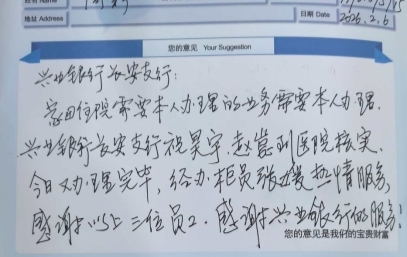 姓名 Name
地址 Address
日期 Date
2026.2.6
您的意见 Your Suggestion
兴业银行长安支行：
家因住院需要本人办理的业务需要本人办理.
兴业银行长安支行祝昊宇, 赵嵩到医院核实.
今日又办理完毕, 经办柜员张媛热情服务,
感谢以上三位员工. 感谢兴业银行的服务!
您的意见是我们的宝贵财富